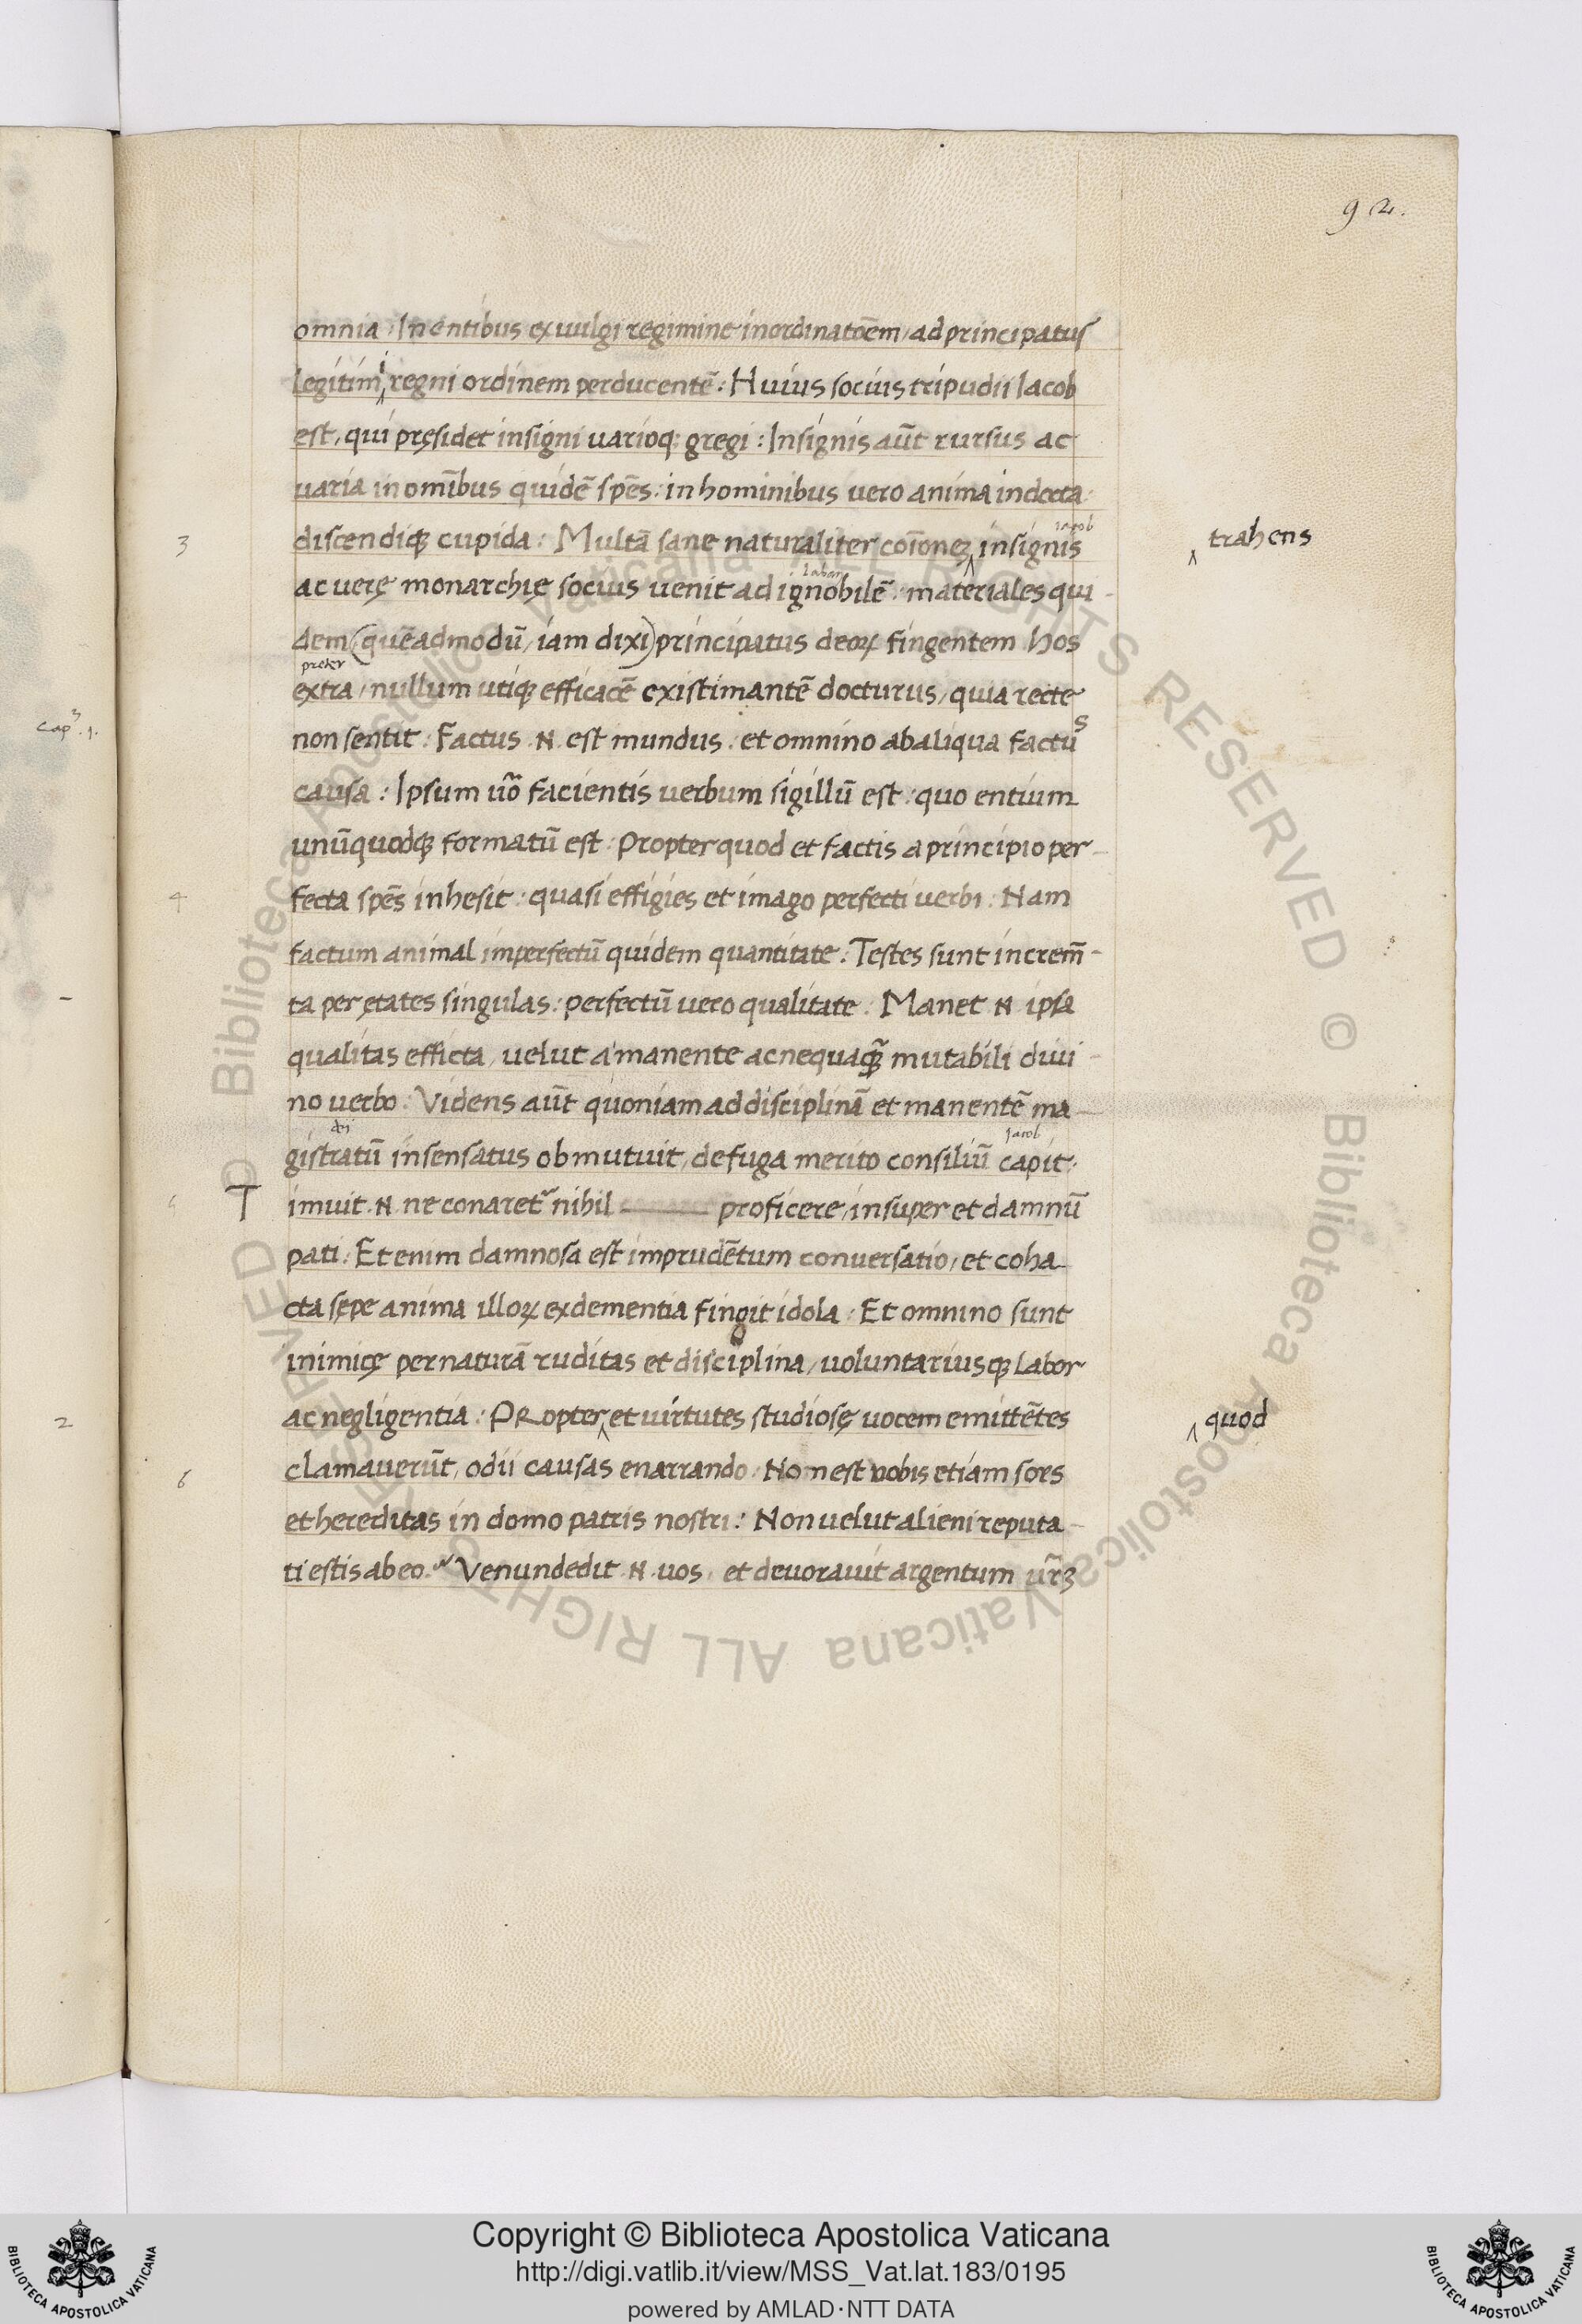 92.
omnia. In entibus ex uulgi regimine inordinatōem, ad principatus
legitimi regni ordinem perducentē: Huius socius tripudii Iacob
est, qui pręsidet insigni uarioq; gregi: Insignis aūt rursus ac
uaria in omībus quidē spēs: in hominibus uero anima indocta
discendiq; cupida: Multā sane naturaliter coīonez insignis
Iacob
trahens
3
ac uerę monarchię socius uenit ad ignobilē: materiales qui
laban
dem (quēadmodū, iam dixi) principatus deoꝝ fingentem hos
preter
extra, nullum utiq; efficacē existimantē docturus, quia recte
non sentit: Factus .N. est mundus: et omnino ab aliqua factus
Cap. 3. 1.
causa: Ipsum uō facientis uerbum sigillū est: quo entium
unūquodq; formatū est: Propter quod et factis a principio per-
fecta spēs inhesit: quasi effigies et imago perfecti uerbi: Nam
4
factum animal imperfectū quidem quantitate: Testes sunt increm̄-
ta per ętates singulas: perfectū uero qualitate: Manet .N. ipsa
qualitas efficta, uelut a manente ac nequaq̄ mutabili diui-
no uerbo: Videns aūt quoniam ad disciplinā et manentē ma-
gistratū insensatus obmutuit, de fuga merito consiliū capit:
dei
Iacob
T imuit .N. ne conaret' nihil proficere, insuper et damnū
pati: Et enim damnosa est imprudētum conuersatio, et coha-
cta sępe anima illoꝝ ex dementia fingit idola: Et omnino sunt
inimicę per naturā ruditas et disciplina, uoluntariusq; labor
ac negligentia: PRopter et uirtutes studiosę uocem emittētes
quod
2
clamauerūt, odii causas enarrando: Non est nobis etiam sors
6
et hereditas in domo patris nostri: Non uelut alieni reputa-
ti estis ab eo. Venundedit .N. uos, et deuorauit argentum ur̄ȝ
© Biblioteca Apostolica Vaticana ALL RIGHTS RESERVED © Biblioteca Apostolica Vaticana ALL RIGHTS RESERVED
BIBLIOTECA APOSTOLICA VATICANA
Copyright © Biblioteca Apostolica Vaticana
http://digi.vatlib.it/view/MSS_Vat.lat.183/0195
powered by AMLAD·NTT DATA
BIBLIOTECA APOSTOLICA VATICANA